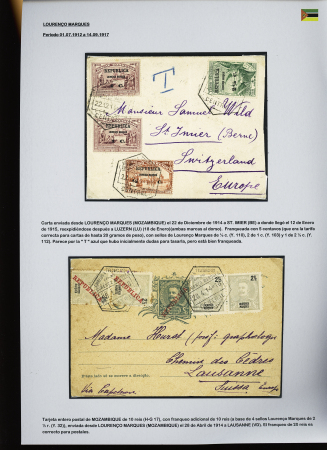 LOURENÇO MARQUES
Periodo 01.07.1912 a 14.09.1917
REPUBLICA
REPUBLICA
T
22 12
Monsieur Samuel Wild
REPUBLICA
St Imier (Berne)
Switzerland
REPUBLICA
Europe
Carta enviada desde LOURENÇO MARQUES (MOZAMBIQUE) el 22 de Diciembre de 1914 a ST. IMIER (BE) a donde llegó el 12 de Enero
de 1915, reexpidiéndose después a LUZERN (LU) (18 de Enero)(ambas marcas al dorso). Franqueada con 5 centavos (que era la tarifa
correcta para cartas de hasta 20 gramos de peso), con sellos de Lourenço Marques de ¼ c. (Y. 110), 2 de 1 c. (Y. 103) y 1 de 2 ½ c. (Y.
112). Parece por la " T " azul que hubo inicialmente dudas para tasarla, pero está bien franqueada.
25
25
Madame Huret (prof: graphologue
Chemin des Cèdres
Lausanne
Suisse Europe
Tarjeta entero postal de MOZAMBIQUE de 10 reis (H-G 17), con franqueo adicional de 10 reis (a base de 4 sellos Lourenço Marques de 2
½ c. (Y. 32)), enviada desde LOURENÇO MARQUES (MOZAMBIQUE) el 20 de Abril de 1914 a LAUSANNE (VD). El franqueo de 20 reis es
correcto para postales.